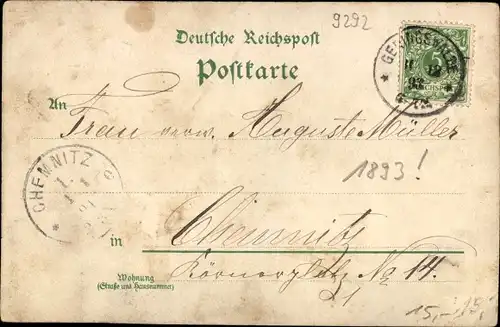 9292
Deutsche Reichspost
Postkarte
An
Frau verw. Auguste Müller
1893!
CHEMNITZ
in
Chemnitz
Wohnung
(Straße und Hausnummer)
Körnerplatz No 14.
15,-